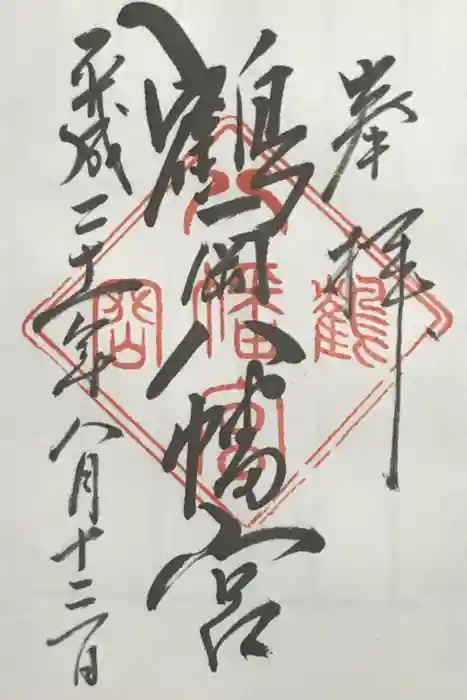 奉拝
鶴岡八幡宮
平成二十一年八月十二日
鶴岡八幡宮